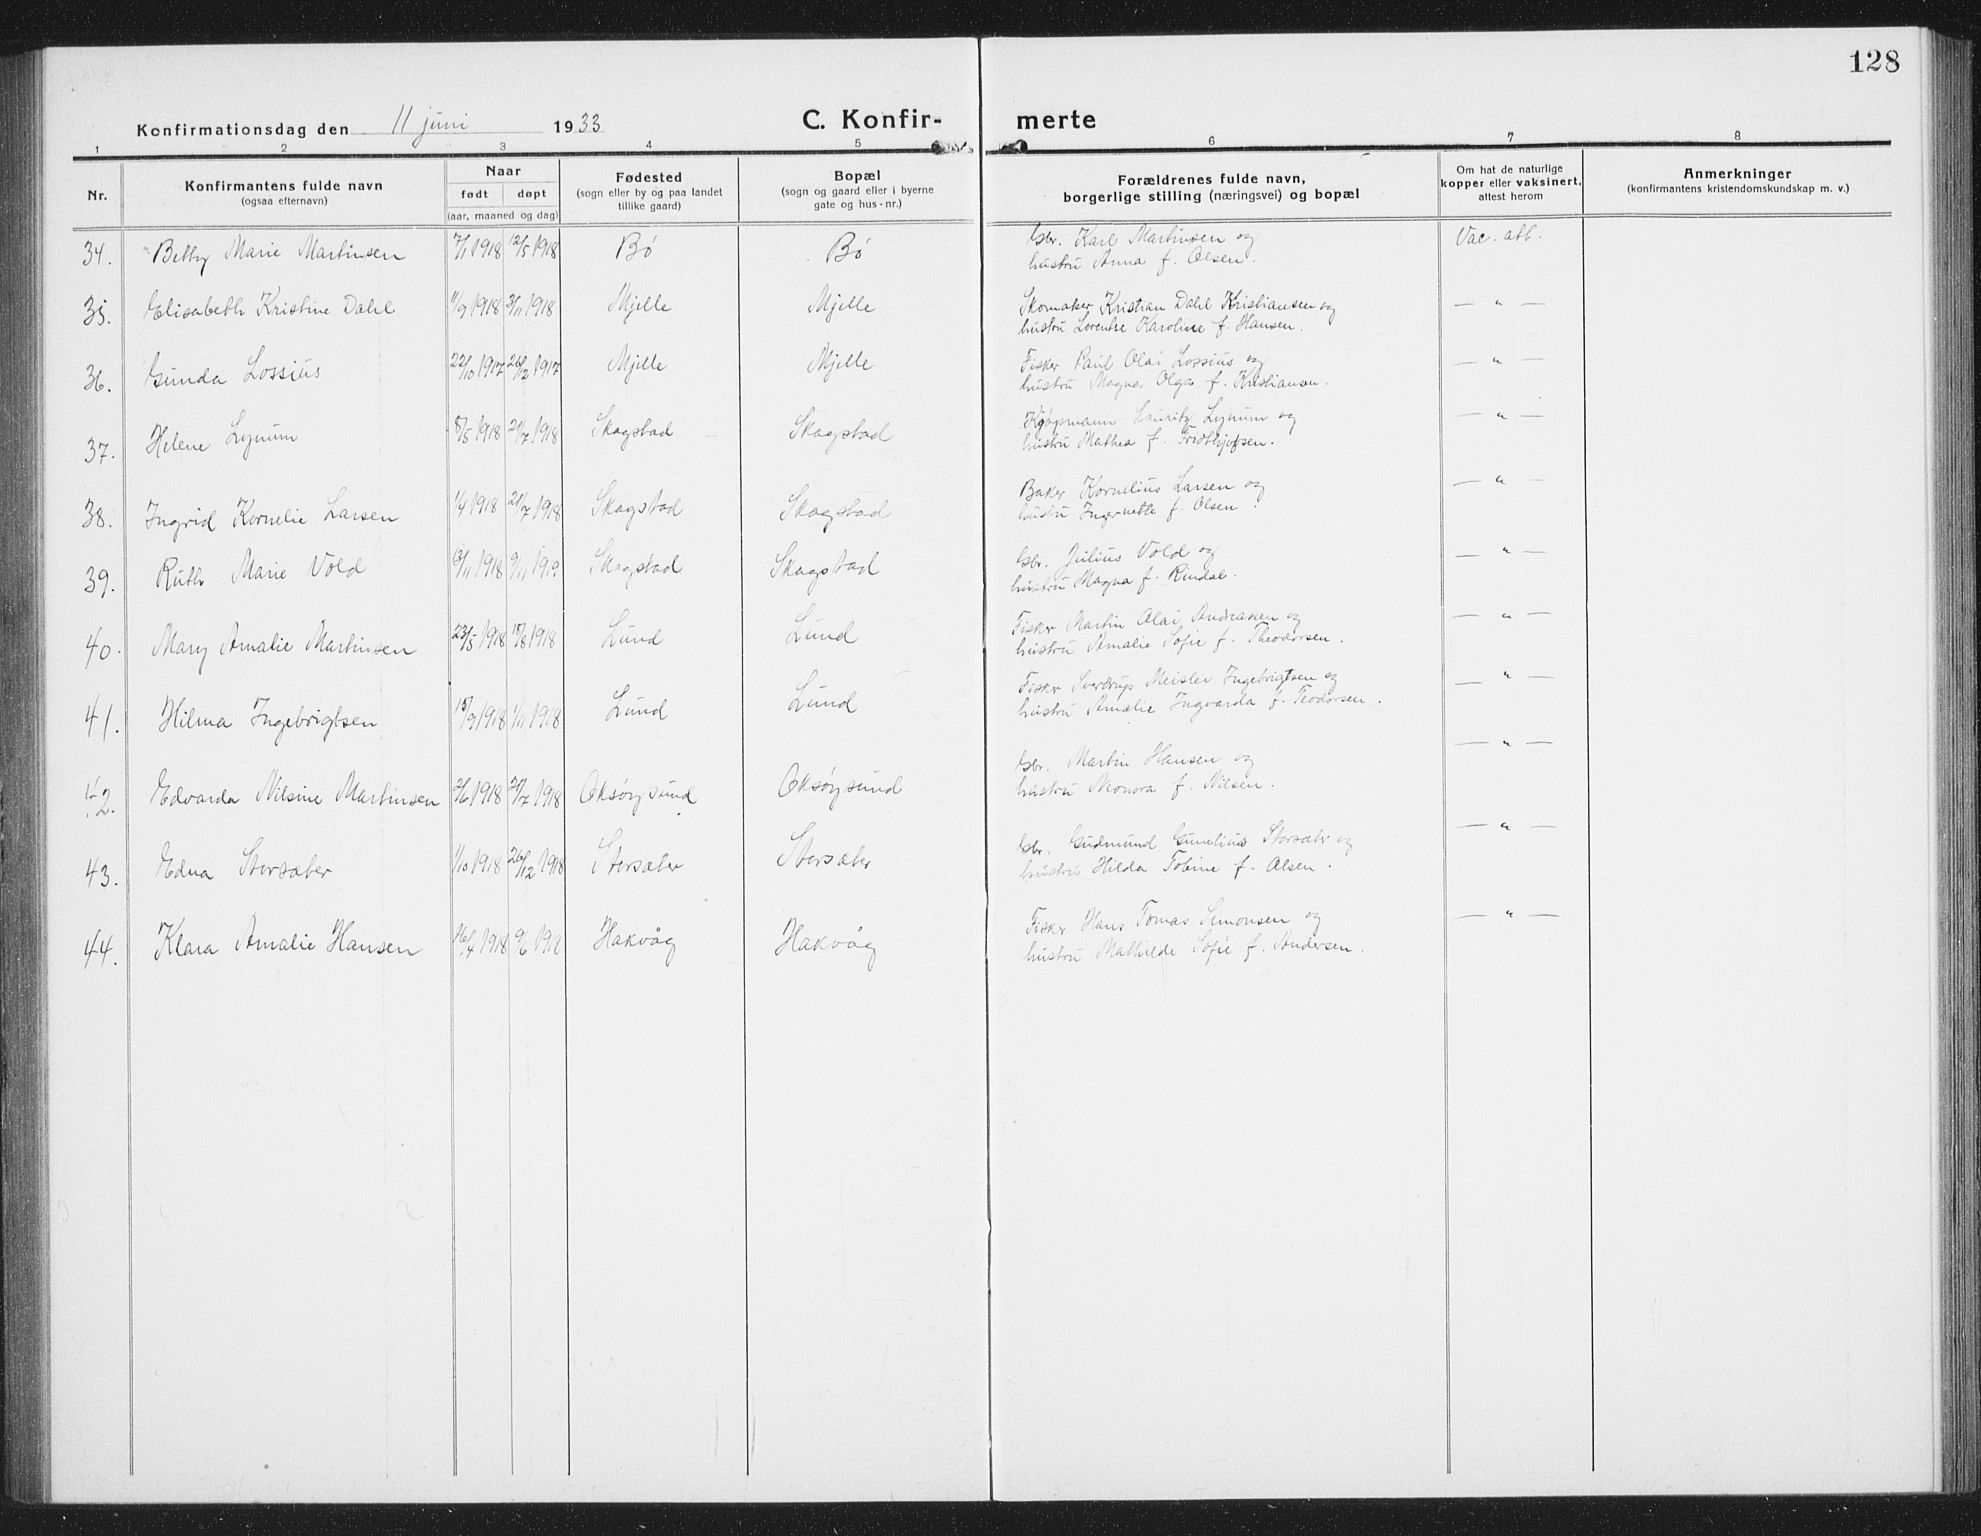 128
Konfirmationsdag den 11 juni 1933 C. Konfir- merte
1 2 3 4 5 6 7 8
Nr. Konfirmantens fulde navn (ogsaa efternavn) Naar født døpt (aar, maaned og dag) Fødested (sogn eller by og paa landet tillike gaard) Bopæl (sogn og gaard eller i byerne gate og hus-nr.) Forældrenes fulde navn, borgerlige stilling (næringsvei) og bopæl Om hat de naturlige kopper eller vaksinert, attest herom Anmerkninger (konfirmantens kristendomskundskap m. v.)
34. Betty Marie Martinsen 7/1 1918 12/5 1918 Bø Bø Gbr. Karl Martinsen og Vac. att.
hustru Anna f. Olsen.
35. Elisabeth Kristine Dahl 11/9 1918 3/11 1918 Mjelle Mjelle Skomaker Kristian Dahl Kristiansen og — " —
hustru Lorentse Karoline f. Hansen.
36. Gunda Lossius 22/10 1917 26/12 1917 Mjelle Mjelle Fisker Paul Olai Lossius og — " —
hustru Magna Olga f. Kristiansen.
37. Helene Lynum 1918 21/7 1918 Skagstad Skagstad Kjøpmann Lauritz Lynum og — " —
hustru Mathea f. Fridthjofsen.
38. Ingrid Kornelie Larsen 1918 21/7 1918 Skagstad Skagstad Baker Kornelius Larsen og — " —
hustru Ingernette f. Olsen.
39. Ruth Marie Vold 1918 Skagstad Skagstad Gbr. Julius Vold og — " —
hustru Magna f. Rindal.
40. Mary Amalie Martinsen 23/5 1918 18/8 1918 Lund Lund Fisker Martin Olai Andreasen og — " —
hustru Amalie Sofie f. Theodorsen.
41. Hilma Ingebrigtsen 15/9 1918 1/11 1918 Lund Lund Fisker Sverdrup Meisler Ingebrigtsen og — " —
hustru Amalie Ingvarda f. Teodorsen.
42. Edvarda Nilsine Martinsen 2/6 1918 21/7 1918 Oksøysund Oksøysund Gbr. Martin Hansen og — " —
hustru Neonora f. Nilsen.
43. Edna Storsæter 1/10 1918 26/12 1918 Storsæter Storsæter Gbr. Gudmund Gunelius Storsæter og — " —
hustru Hilda Tobine f. Olsen.
44. Klara Amalie Hansen 16/4 1918 9/6 1918 Hakvåg Hakvåg Fisker Hans Tomas Simonsen og — " —
hustru Mathilde Sofie f. Andersen.